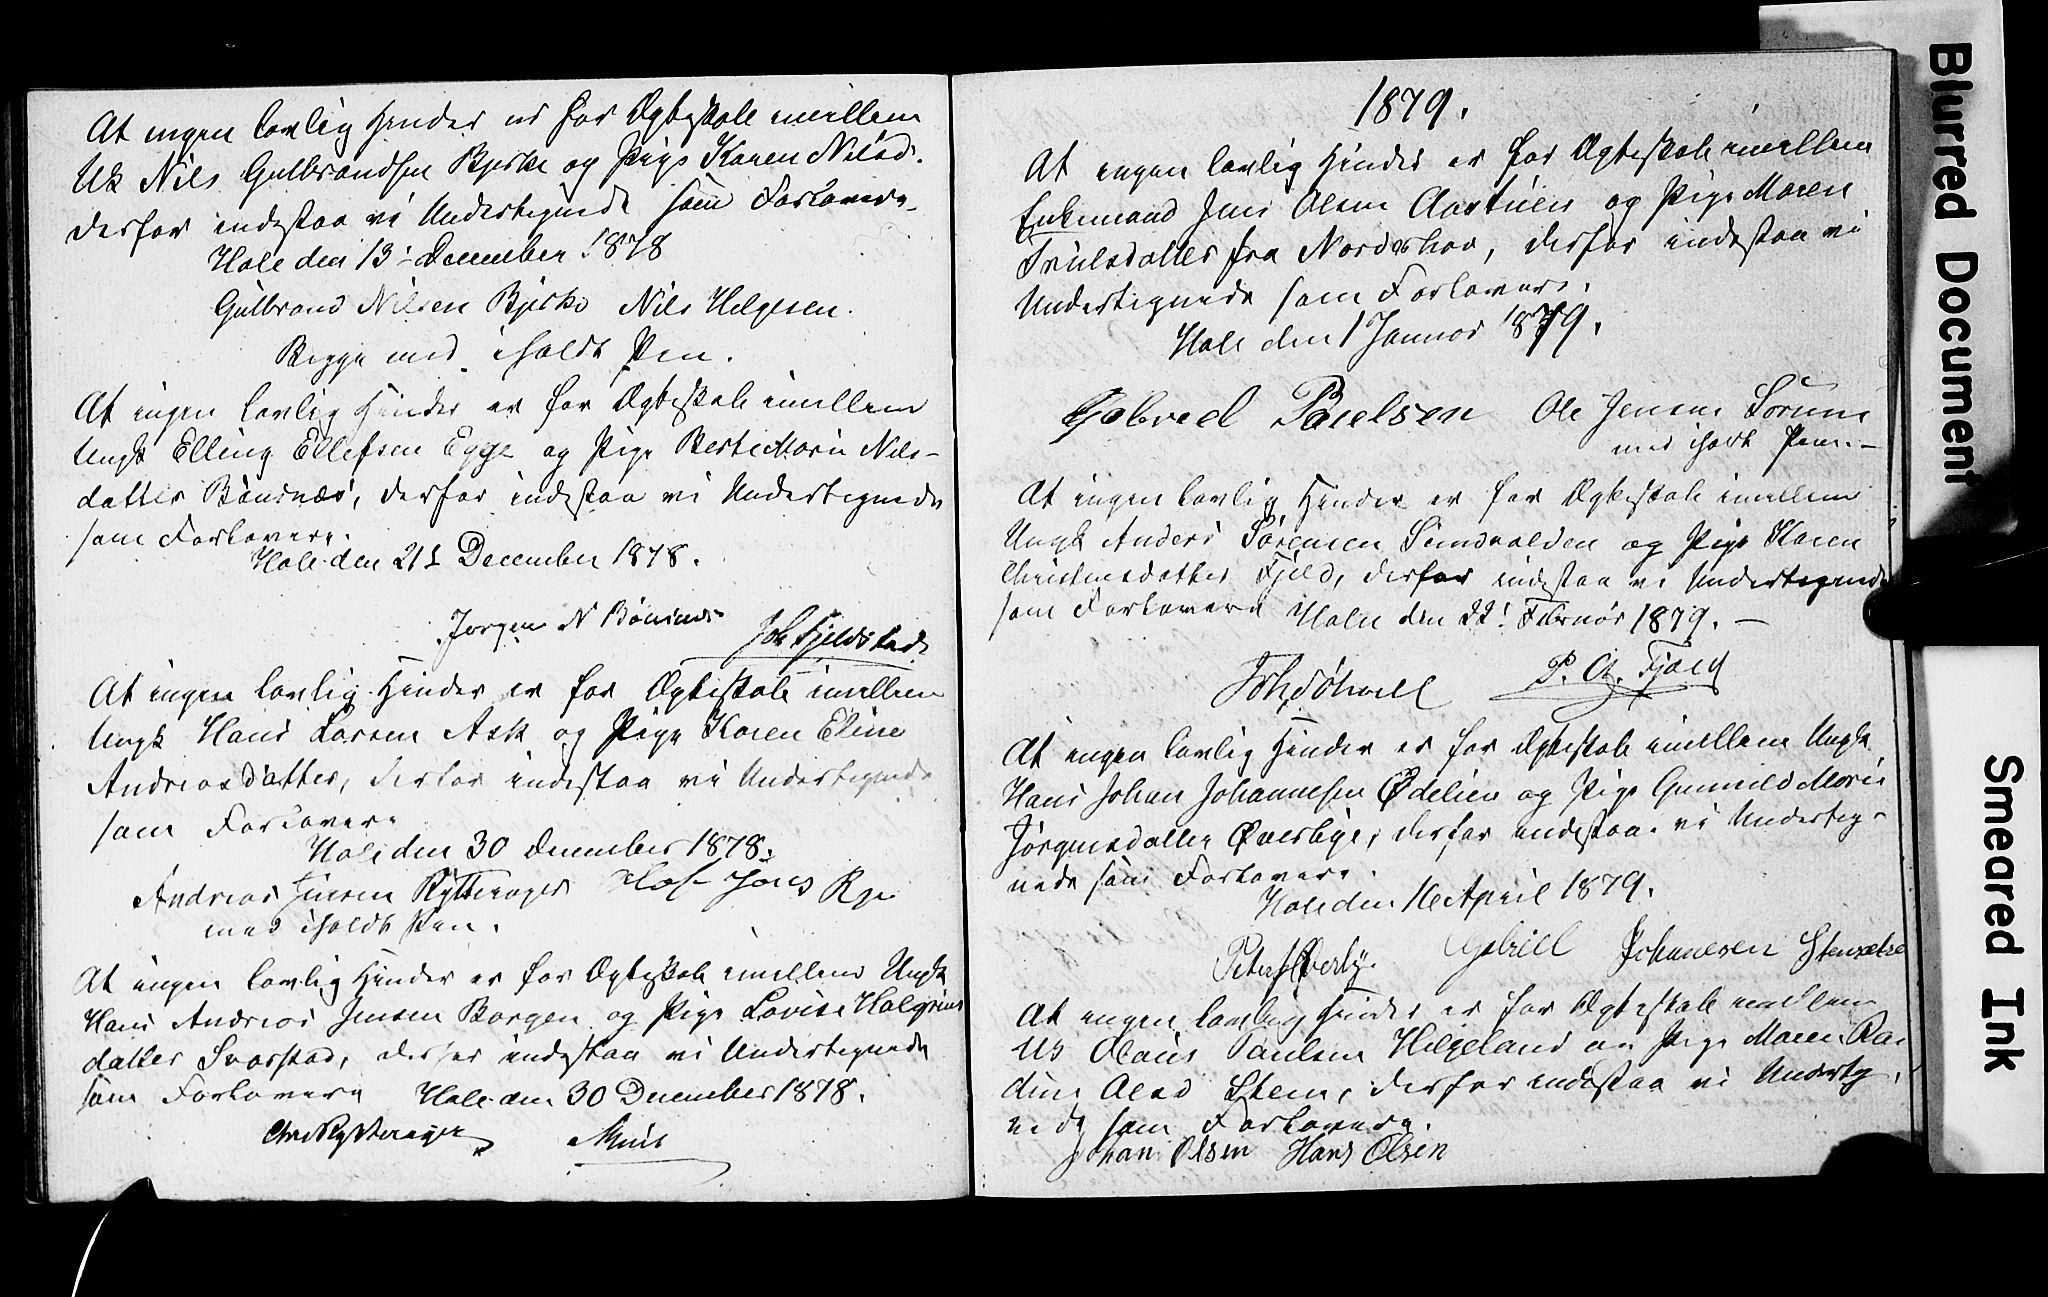 At ingen lovlig Hinder er for Ægteskab imellem
Uk Nils Gulbrandsen Bjerke og Pige Karen Nilsd.
derfor indestaa vi Undertegnede som Forlovere
Hole den 13 December 1878
Gulbrand Nilsen Bjerke Nils Helgesen.
Begge med iholdt Pen.
At ingen lovlig Hinder er for Ægteskab imellem
Ungk Elling Ellefsen Egge og Pige Berte Marie Nils-
datter Bönsnæs, derfor indestaa vi Undertegnede
som Forlovere.
Hole den 21 December 1878.
Jørgen N Bönsnæs Joh Fjeldstad
At ingen lovlig Hinder er for Ægteskab imellem
Ungk Hans Larsen Ask og Pige Karen Eline
Andreasdatter, derfor indestaa vi Undertegnede
som Forlovere
Hole den 30 December 1878.
Andreas Jensen Rytterager
med iholdt Pen.
At ingen lovlig Hinder er for Ægteskab imellem Ungk
Hans Andreas Jensen Borgen og Pige Lovise Halgrims
datter Svarstad, derfor indestaa vi Undertegnede
som Forlovere Hole den 30 December 1878.
Rytterager
1879.
At ingen lovlig Hinder er for Ægteskab imellem
Enkemand Jens Olsen og Pige Maren
Trulsdatter fra Norderhov, derfor indestaa vi
Undertegnede som Forlovere.
Hole den 1 Januar 1879.
Gabriel Paulsen Ole Jensen Sørum
med iholdt Pen.-
At ingen lovlig Hinder er for Ægteskab imellem
Ungk Anders Sørensen Sundvolden og Pige Karen
Christensdatter Fjeld, derfor indestaa vi Undertegnede
som Forlovere Hole den 22 Februar 1879.-
P. A. Fjeld
At ingen lovlig Hinder er for Ægteskab imellem Ungk
Hans Johan Johannesen Ødelien og Pige Gunnild Marie
Jörgensdatter Øverbye, derfor indestaa vi Underteg-
nede som Forlovere.
Hole den 16 April 1879.
Peter J Øverby. Gabriel Johannesen Stensætre
At ingen lovlig Hinder er for Ægteskab imellem
Uk Olaus Paulsen Helgeland og Pige Maren
Olsd Steen, derfor indestaa vi Underteg-
nede som Forlovere.
Johan Olsen Hans Olsen
Blurred Document
Smeared Ink